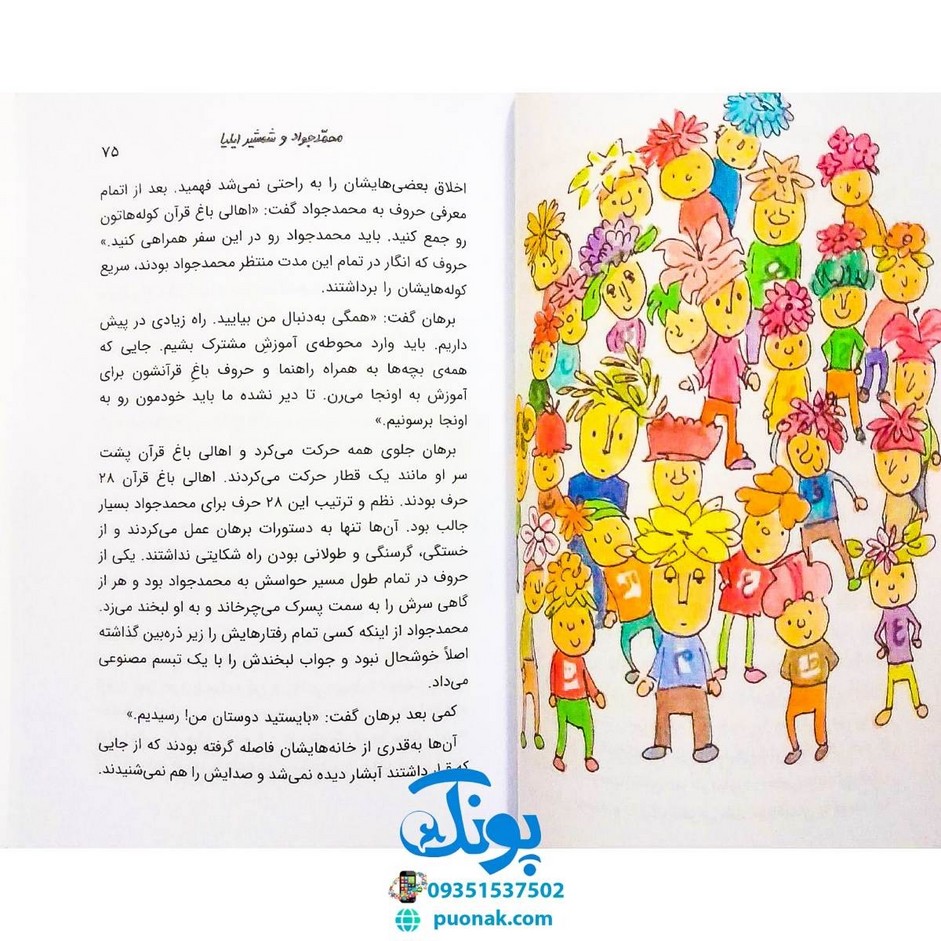 محمدجواد و شمشیر ایلیا
۷۵
اخلاق بعضی‌هایشان را به راحتی نمی‌شد فهمید. بعد از اتمام
معرفی حروف به محمدجواد گفت: «اهالی باغ قرآن کوله‌هاتون
رو جمع کنید. باید محمدجواد رو در این سفر همراهی کنید.»
حروف که انگار در تمام این مدت منتظر محمدجواد بودند، سریع
کوله‌هایشان را برداشتند.
برهان گفت: «همگی به‌دنبال من بیایید. راه زیادی در پیش
داریم. باید وارد محوطه‌ی آموزشِ مشترک بشیم. جایی که
همه‌ی بچه‌ها به همراه راهنما و حروف باغِ قرآنشون برای
آموزش به اونجا می‌رن. تا دیر نشده ما باید خودمون رو به
اونجا برسونیم.»
برهان جلوی همه حرکت می‌کرد و اهالی باغ قرآن پشت
سر او مانند یک قطار حرکت می‌کردند. اهالی باغ قرآن ۲۸
حرف بودند. نظم و ترتیب این ۲۸ حرف برای محمدجواد بسیار
جالب بود. آن‌ها تنها به دستورات برهان عمل می‌کردند و از
خستگی، گرسنگی و طولانی بودن راه شکایتی نداشتند. یکی از
حروف در تمام طول مسیر حواسش به محمدجواد بود و هر از
گاهی سرش را به سمت پسرک می‌چرخاند و به او لبخند می‌زد.
محمدجواد از اینکه کسی تمام رفتارهایش را زیر ذره‌بین گذاشته
اصلاً خوشحال نبود و جواب لبخندش را با یک تبسم مصنوعی
می‌داد.
کمی بعد برهان گفت: «بایستید دوستان من! رسیدیم.»
آن‌ها به‌قدری از خانه‌هایشان فاصله گرفته بودند که از جایی
که قرار داشتند آبشار دیده نمی‌شد و صدایش را هم نمی‌شنیدند.
پونک
09351537502
puonak.com